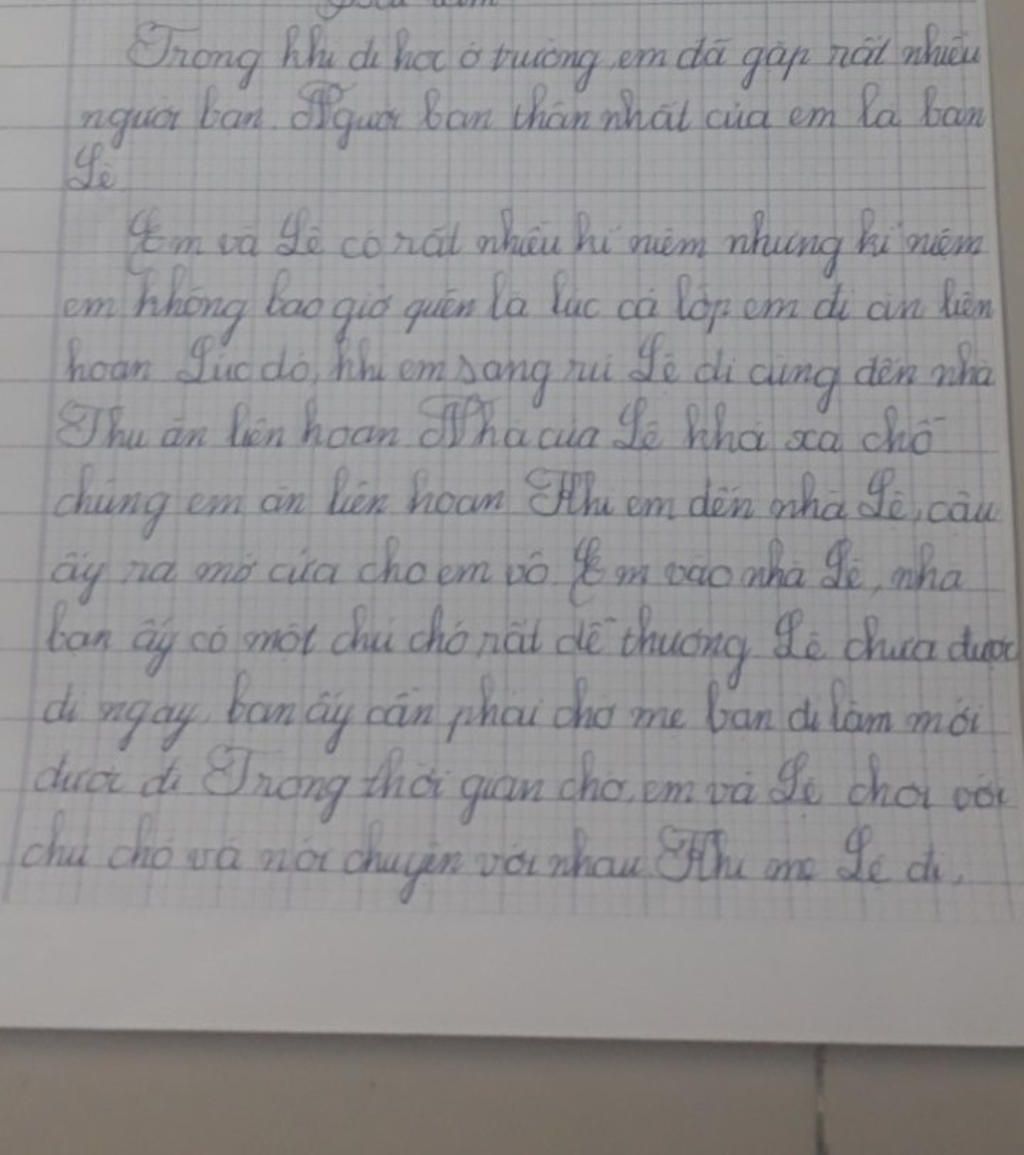 Bài làm
Trong khi đi học ở trường, em đã gặp rất nhiều
người bạn. Người bạn thân nhất của em là bạn
Lê
Em và Lê có rất nhiều kỉ niệm nhưng kỉ niệm
em không bao giờ quên là lúc cả lớp em đi ăn liên
hoan. Lúc đó, khi em sang rủi Lê đi cùng đến nhà
Thu ăn liên hoan. Nhà của Lê khá xa chỗ
chúng em ăn liên hoan. Khi em đến nhà Lê, cậu
ấy ra mở cửa cho em vô. Em vào nhà Lê, nhà
bạn ấy có một chú chó rất dễ thương. Lê chưa được
đi ngay, bạn ấy cần phải chờ mẹ bạn đi làm mới
được đi. Trong thời gian chờ, em và Lê chơi với
chú chó và nói chuyện với nhau. Khi mẹ Lê đi,